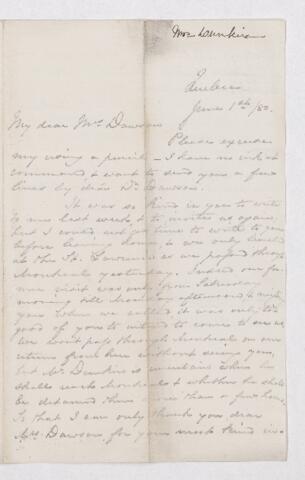 Mrs Dunkin
Quebec
June 1st/80.
My dear Mrs Dawson
Please excuse
my using a pencil - I have no ink at
command & want to send you a few
lines by dear Dr Dawson.
It was so kind in you to write
to me last week & to invite us again,
but I could not get time to write to you
before leaving home, & we only
at the St. Lawrence as we passed through
Montreal yesterday. Indeed our for-
mer visit was only from Saturday
morning till Monday afternoon &
you when we called it was only too
good of you to intend to come to see us,
we wont pass through Montreal on our
return from here without seeing you,
but Mr. Dunkin is uncertain when he
shall reach Montreal & whether he shall
be detained there more than a few hours,
so that I can only thank you dear
Mrs Dawson for your most kind in-